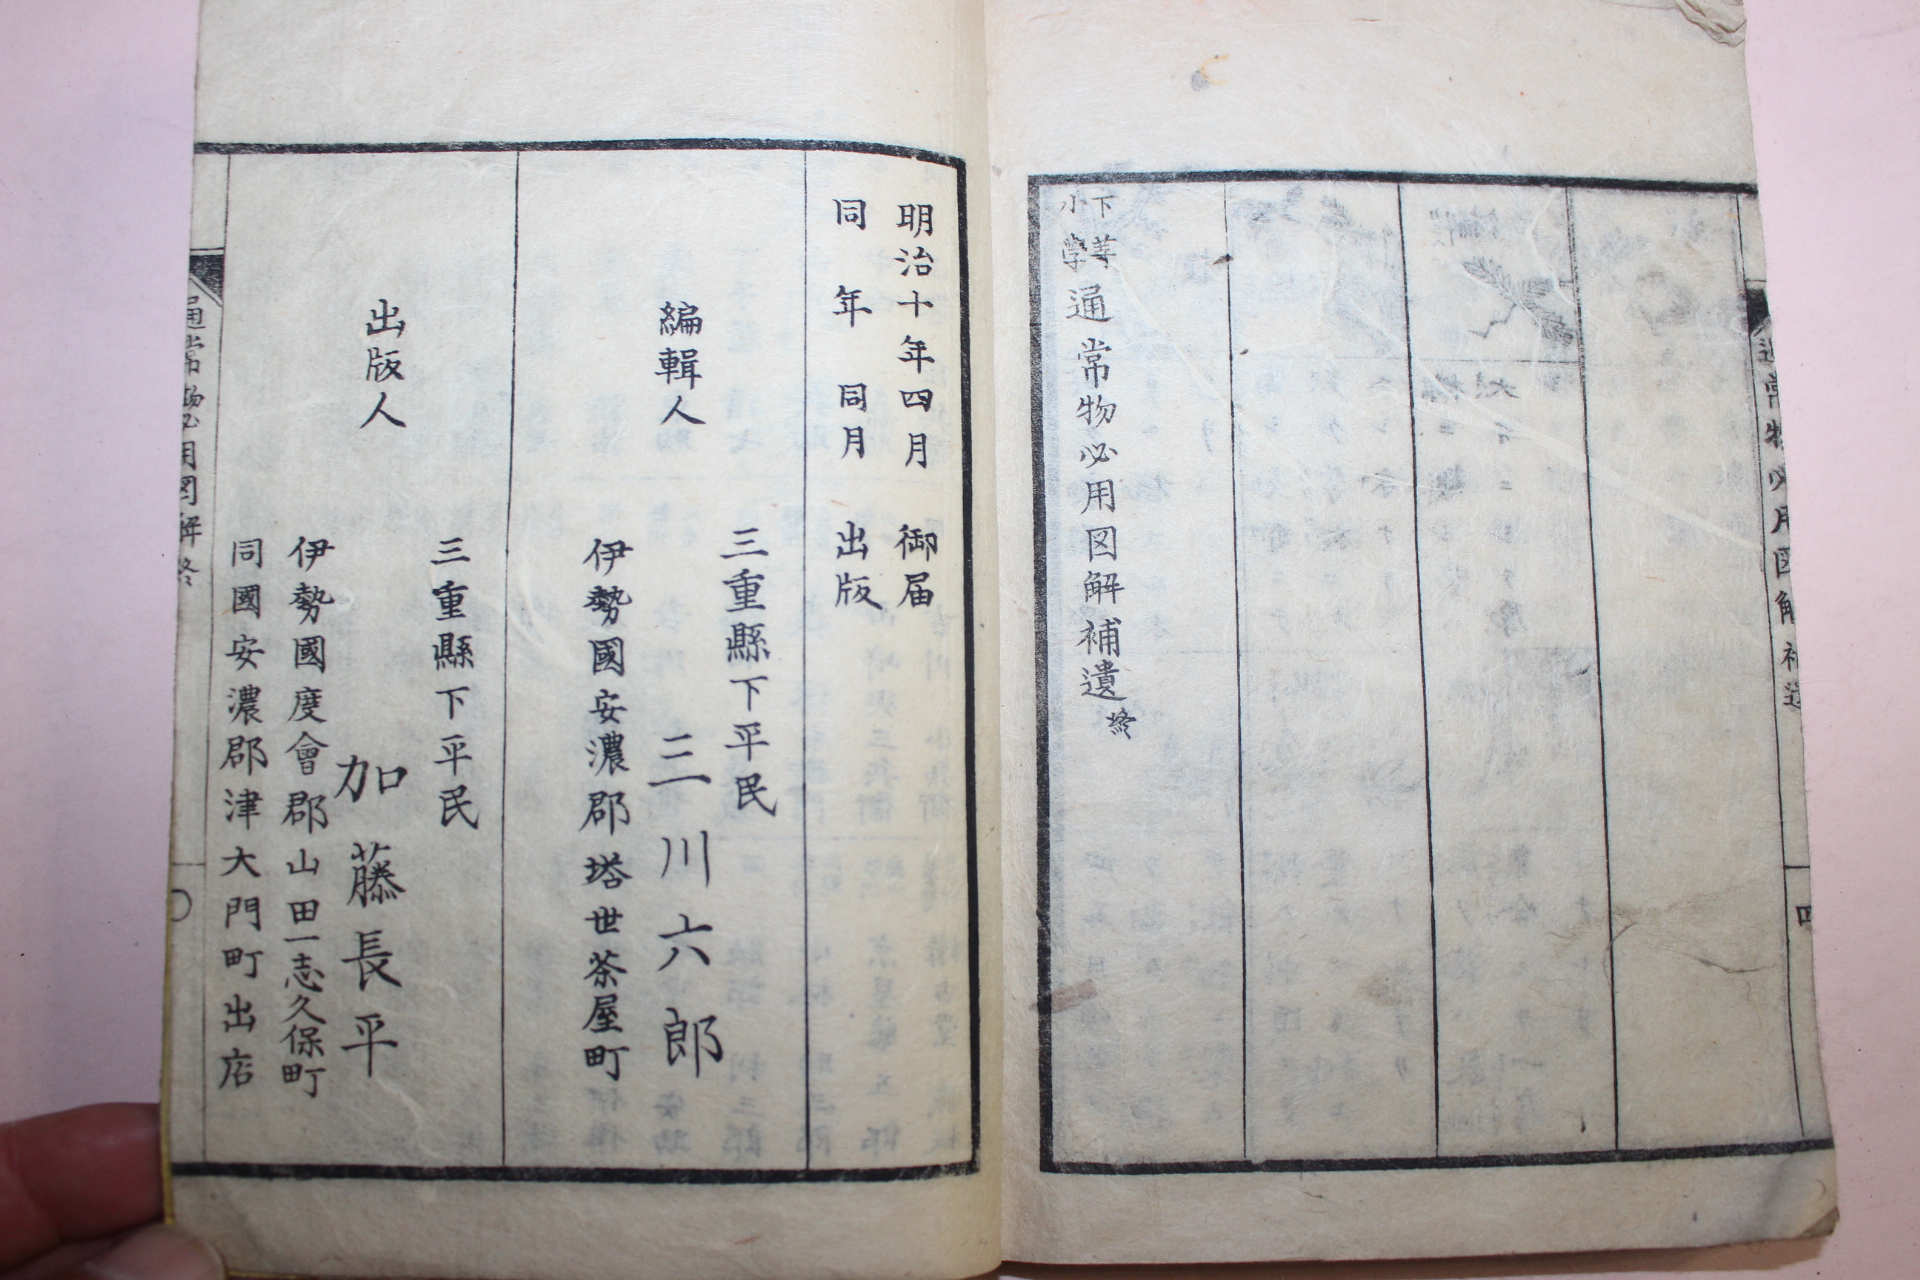 通常物必用図解補遺
四
下等
小学
通常物必用図解補遺終
明治十年四月 御届
同年同月 出版
編輯人
三重縣下平民
三川六郎
伊勢國安濃郡塔世茶屋町
出版人
三重縣下平民
加藤長平
伊勢國度會郡山田一志久保町
同國安濃郡津大門町出店
通常物必用図解終